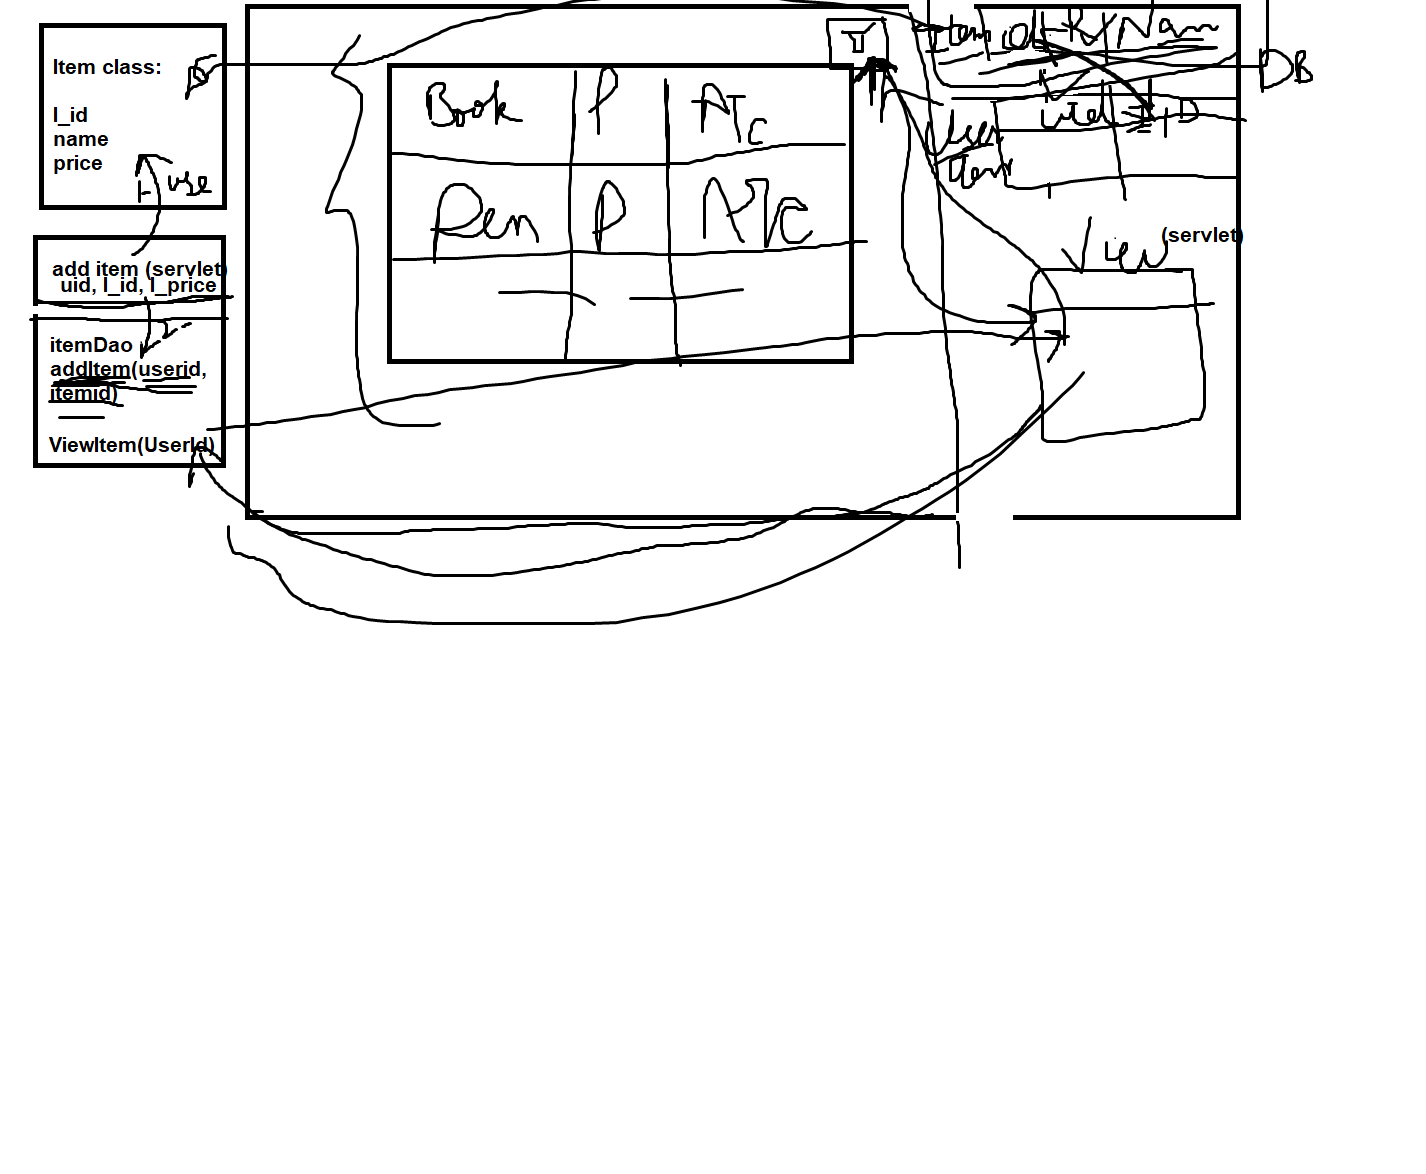 Item class:
I_id
name
price
use
add item (servlet)
uid, I_id, I_price
itemDao
addItem(userid,
itemid)
ViewItem(UserId)
Book P ATC
Pen P ATC
DB
Item
Name
User
Item
View
(servlet)